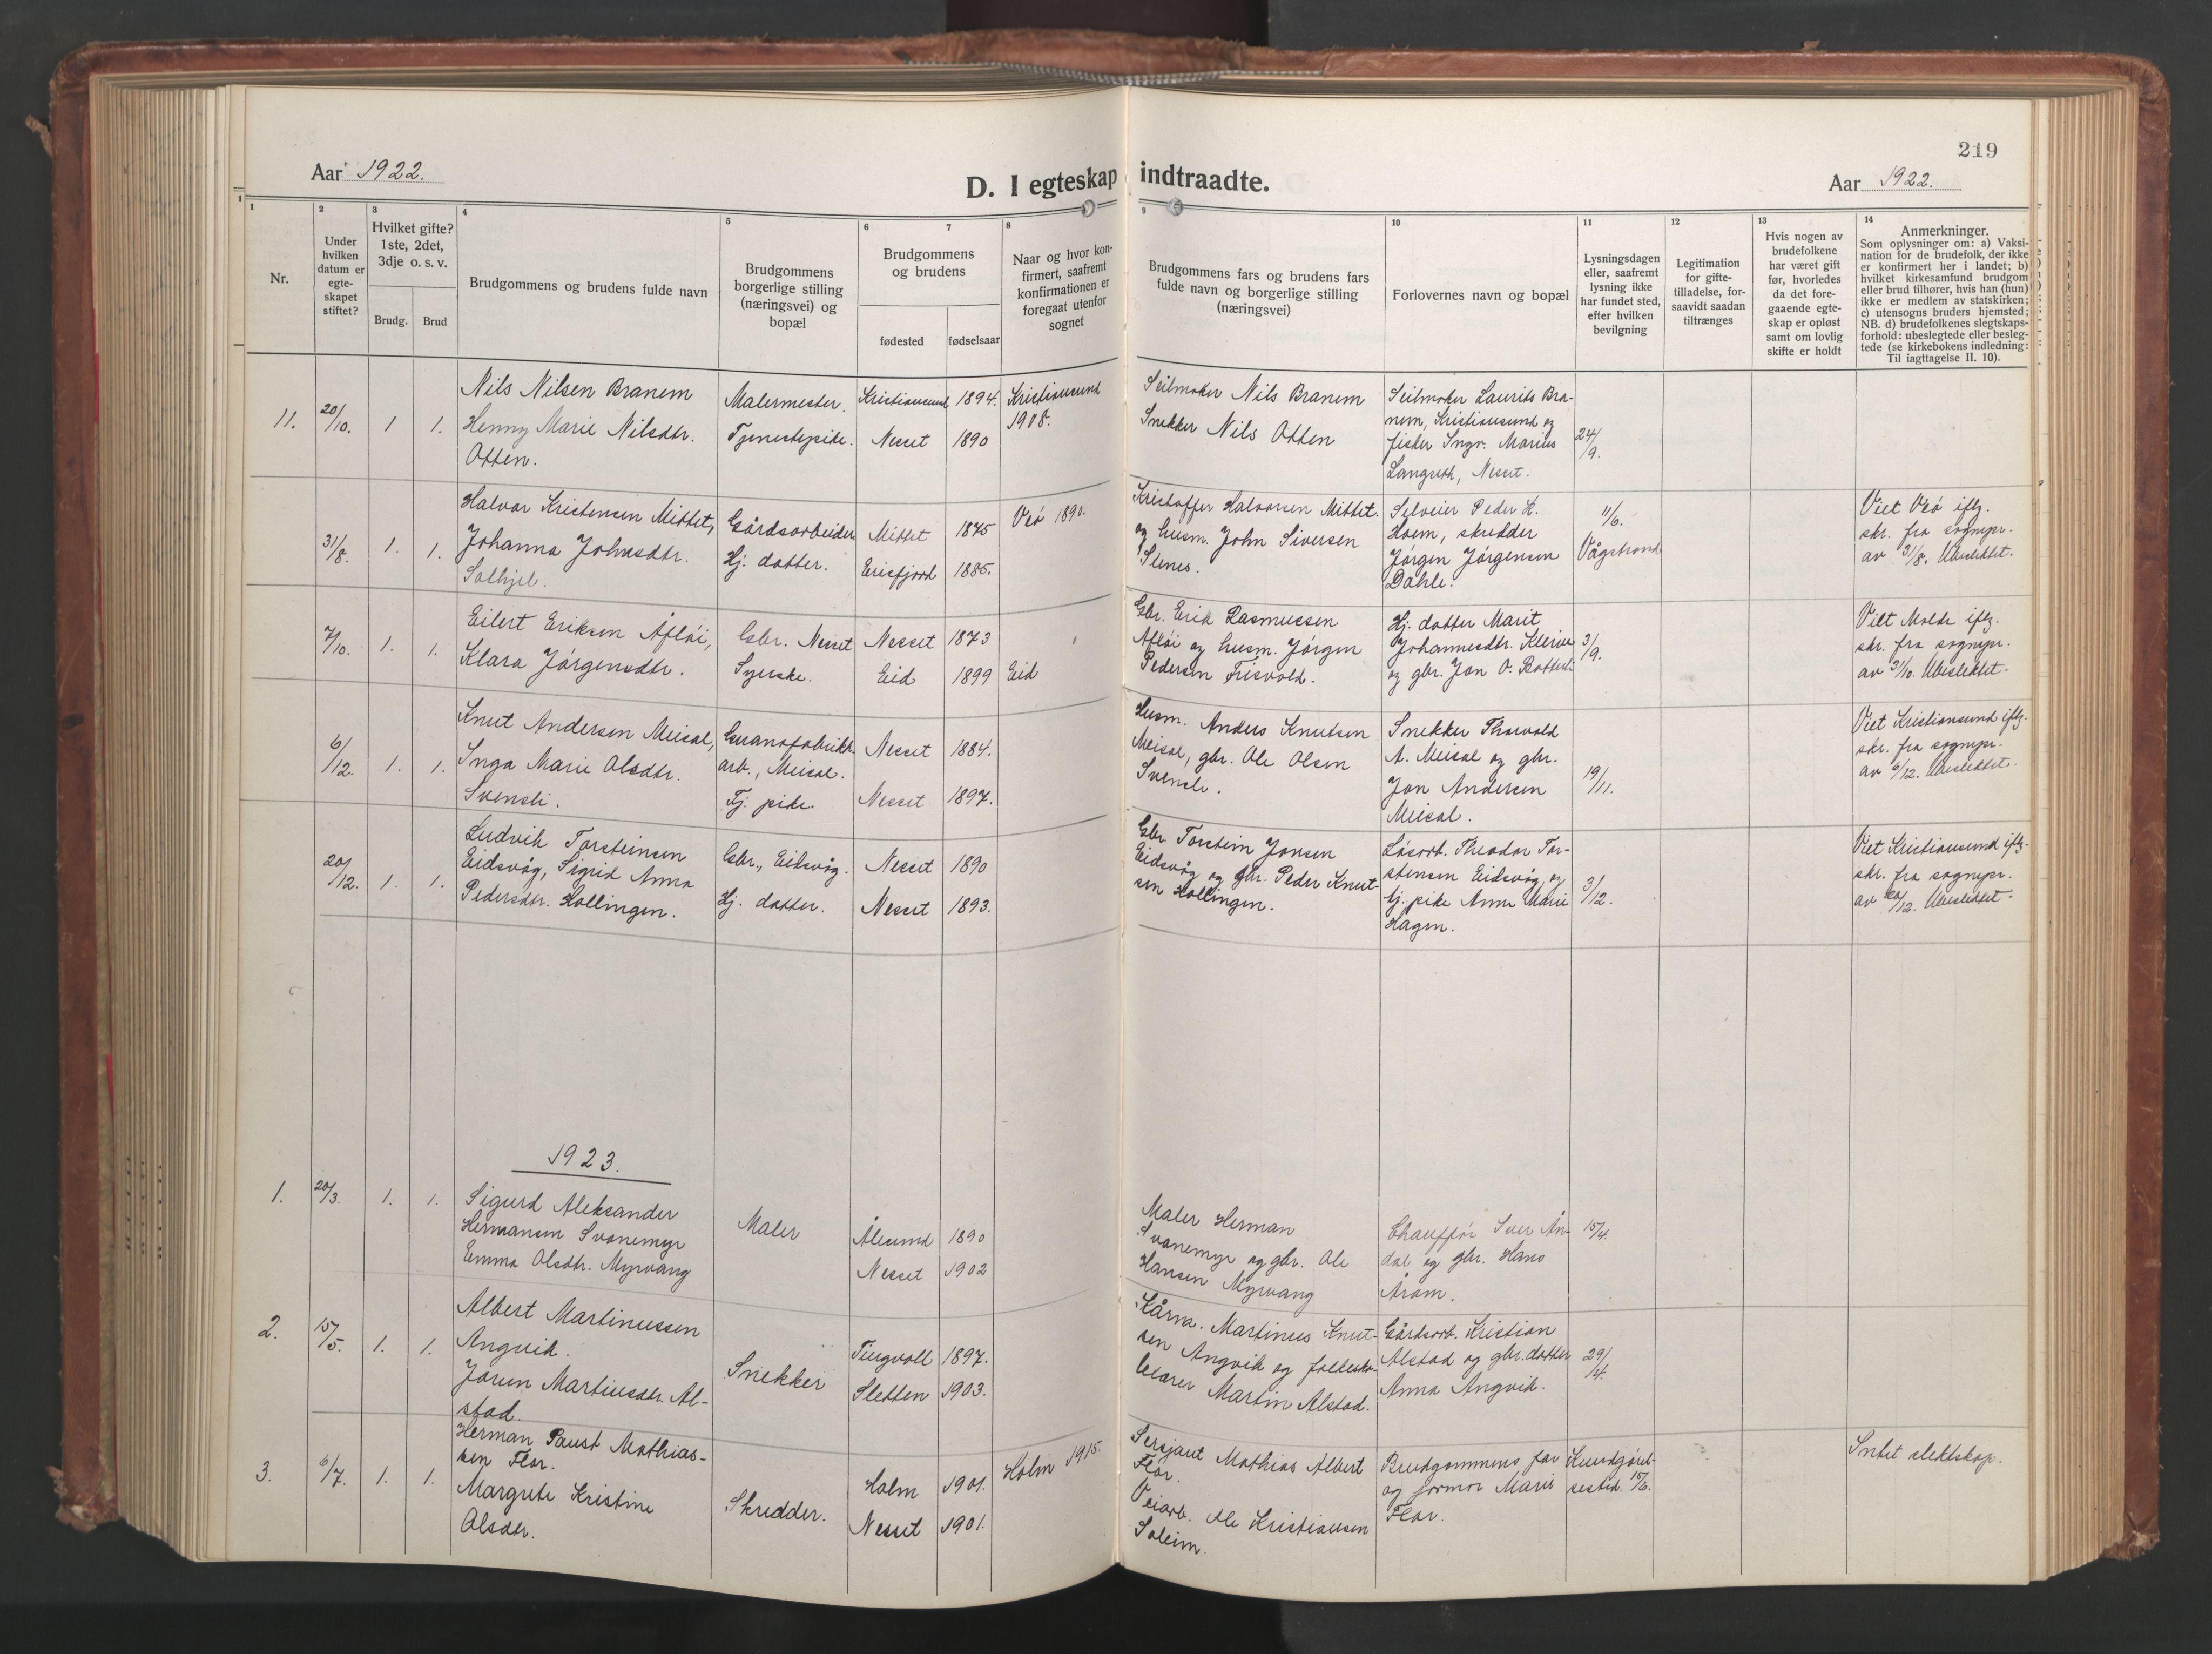 219
Aar 1922.
D. I egteskap indtraadte.
Aar 1922.
1
2
3
4
5
6
7
8
9
10
11
12
13
14
Nr.
Under
hvilken
datum er
egte-
skapet
stiftet?
Hvilket gifte?
1ste, 2det,
3dje o. s. v.
Brudg.
Brud
Brudgommens og brudens fulde navn
Brudgommens
borgerlige stilling
(næringsvei) og
bopæl
Brudgommens
og brudens
fødested
fødselsaar
Naar og hvor kon-
firmert, saafremt
konfirmationen er
foregaat utenfor
sognet
Brudgommens fars og brudens fars
fulde navn og borgerlige stilling
(næringsvei)
Forlovernes navn og bopæl
Lysningsdagen
eller, saafremt
lysning ikke
har fundet sted,
efter hvilken
bevilgning
Legitimation
for gifte-
tilladelse, for-
saavidt saadan
tiltrænges
Hvis nogen av
brudefolkene
har været gift
før, hvorledes
da det fore-
gaaende egte-
skap er opløst
samt om lovlig
skifte er holdt
Anmerkninger.
Som oplysninger om: a) Vaksi-
nation for de brudefolk, der ikke
er konfirmert her i landet; b)
hvilket kirkesamfund brudgom
eller brud tilhører, hvis han (hun)
ikke er medlem av statskirken;
c) utensogns bruders hjemsted;
NB. d) brudefolkenes slegtskaps-
forhold: ubeslegtede eller besleg-
tede (se kirkebokens indledning:
Til iagttagelse II. 10).
11.
20/10.
1
1.
Nils Nilsen Branem
Henny Marie Nilsdtr.
Otten.
Malermester.
Tjenestepike.
Kristiansund 1894.
Nesset 1890
Kristiansund
1908.
Seilmaker Nils Branem
Snekker Nils Otten
Seilmaker Laurits Bra-
nem, Kristiansund og
fisker Ingv. Marius
Langseth, Nesset.
24/9.
31/8.
1.
1.
Halvor Kristensen Mittet,
Johanna Johnsdtr.
Solhjel.
Gårdsarbeider
Hj. datter.
Mittet 1875
Eresfjord 1885.
Veö 1890.
Kristoffer Halvorsen Mittet.
og husm. John Siversen
Slenes.
Selveier Peder H.
Hoem, skredder
Jörgen Jörgensen
Dahle.
11/6.
Vågstrand
Viet Veö iflg.
skr. fra sognepr.
av 31/8. Ubeslektet.
7/10.
1.
1.
Eilert Eriksen Aflöi,
Klara Jörgensdtr.
Gbr. Nesset
Syerske.
Nesset 1873
Eid 1899
Eid
Gbr. Erik Rasmussen
Aflöi og husm. Jörgen
Pedersen Frisvold.
Hj. datter Marit
Johannesdtr.
og gbr. Jon O.
3/9.
Viet Molde iflg.
skr. fra sognepr.
av 31/10. Ubeslektet.
6/12.
1.
1.
Knut Andersen Meisal,
Inga Marie Olsdtr.
Svensli.
Guanofabrikk
arb., Meisal.
Tj. pike.
Nesset 1884.
Nesset 1897.
Husm. Anders Knutsen
Meisal, gbr. Ole Olsen
Svensli.
Snekker Thorvald
A. Meisal og gbr.
Jon Andersen
Meisal.
19/11.
Viet Kristiansund iflg.
skr. fra sognepr.
av 6/12. Ubeslektet.
20/12.
1.
1.
Ludvik Torsteinsen
Eidsvåg, Sigrid Anna
Pedersdtr. Hollingen.
Gbr., Eidsvåg.
Hj. datter.
Nesset 1890
Nesset 1893.
Gbr Torstein Jonsen
Eidsvåg og gbr. Peder Knut-
sen Hollingen.
Lösarb. Theodor Tor-
stensen Eidsvåg, og
tj. pike Anne Marie
Hagen.
3/12.
Viet Kristiansund iflg.
skr. fra sognepr.
av 20/12. Ubeslektet.
1923.
1.
20/3.
1.
1.
Sigurd Aleksander
Hermansen Svanemyr
Emma Olsdtr. Myrvang
Maler
Ålesund 1890
Nesset 1902
Maler Herman
Svanemyr og gbr. Ole
Hansen Myrvang
Chaufför Iver Ån-
dal og gbr. Hans
Åram.
15/4.
2.
15/5.
1.
1.
Albert Martinussen
Angvik.
Jorun Martinsdtr. Al-
stad.
Snekker
Tingvoll 1897.
Sletten 1903.
Kårm. Martinus Knut-
sen Angvik og folkesko-
lelærer Martin Alstad.
Gårdsarb. Kristian
Alstad og gbr.datter
Anna Angvik.
29/4.
3.
6/7.
1.
1.
Herman Paust Mathias-
sen Flor.
Margrete Kristine
Olsdtr.
Skredder.
Holm 1901.
Nesset 1901.
Holm 1915.
Sersjant Mathias Albert
Flor.
Veiarb. Ole Kristiansen
Soleim.
Brudgommens far
og farmor Marie
Flor.
Kundgjörel-
sested. 15/6.
Intet slektskap.